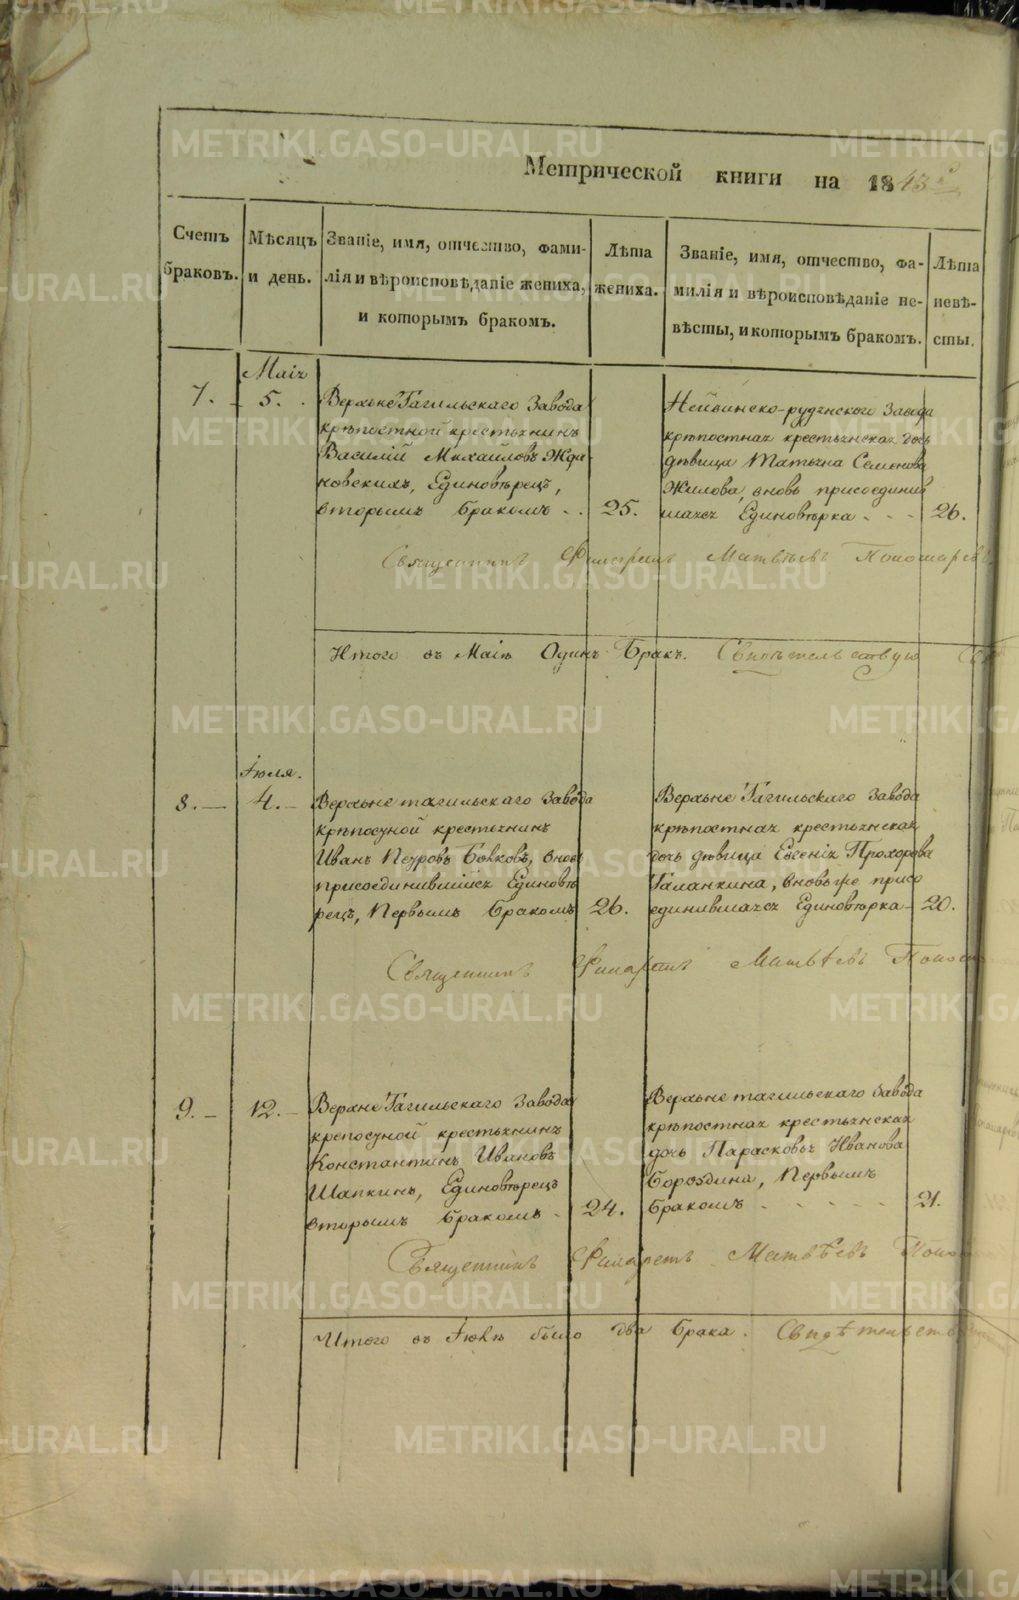 Метрической книги на 1843 г.
Счетъ браковъ.
Мѣсяцъ и день.
Званіе, имя, отчество, фами-
лія и вѣроисповѣданіе жениха,
и которымъ бракомъ.
Лѣта
жениха.
Званіе, имя, отчество, фа-
милія и вѣроисповѣданіе не-
вѣсты, и которымъ бракомъ.
Лѣта
невѣ-
сты.
Маія
7. 5.
Верхне Тагильскаго Завода
крѣпостной крестьянинъ
Василій Михайловъ Жда-
новскихъ, Единовѣрецъ,
вторымъ бракомъ - - 25.
Нейвинско-рудянского Завода
крѣпостная крестьянская дочь
дѣвица Татьяна Семенова
Жилова, вновь присоединив
шаяся Единовѣрка - - - 26.
Священникъ Филаретъ Матвѣевъ Пономаревъ
Итого въ Маіѣ Одинъ Бракъ. Свидѣтельствую
Іюля.
8. — 4. —
Верхне тагильскаго Завода
крѣпосной крестьянинъ
Иванъ Петровъ Бѣлковъ, вновь
присоединившійся Единовѣ
рецъ, Первымъ бракомъ 26.
Верхне Тагильскаго Завода
крѣпостная крестьянская
дочь дѣвица Евгенія Прохорова
Галанкина, вновь же присо
единившаяся Единовѣрка - 20.
Священникъ Филаретъ Матвѣевъ
9. — 12. —
Верхне Тагильскаго Завода
крепосной крестьянинъ
Константинъ Ивановъ
Шапкинъ, Единовѣрецъ
вторымъ бракомъ - 24.
Верхне тагильскаго Завода
крѣпостная крестьянская
дочь Парасковья Иванова
Бороздина, Первымъ
бракомъ - - - - - 21.
Священникъ Филаретъ Матвѣевъ
Итого въ Іюлѣ было два брака.
METRIKI.GASO-URAL.RU